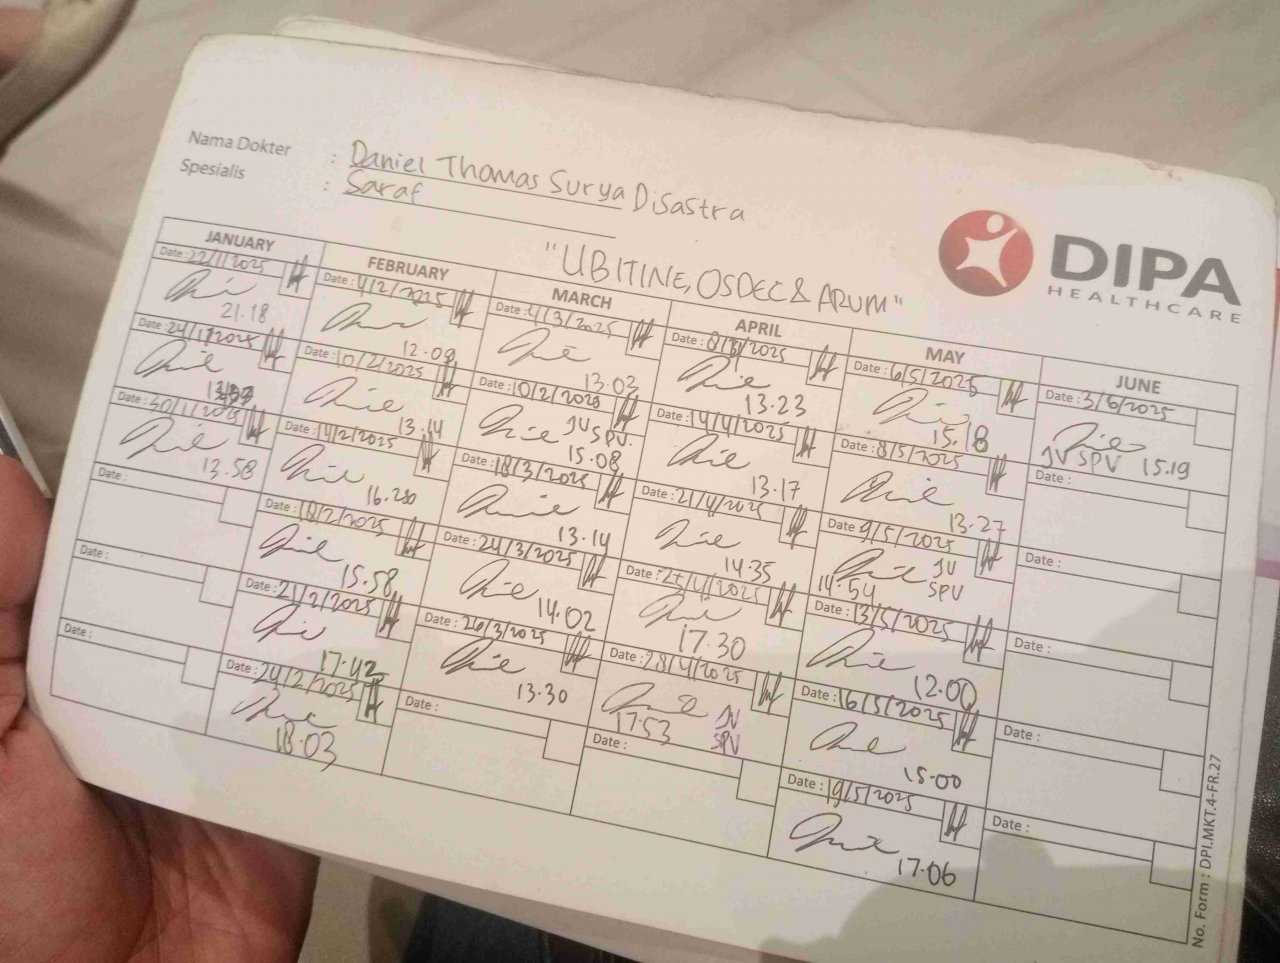 Nama Dokter : Daniel Thomas Surya Disastra
Spesialis : Saraf
"UBITINE, OSDEC & ARUM"
DIPA
HEALTHCARE
JANUARY
Date : 22/1/2025
21.18
Date : 24/1/2025
Date : 30/1/2025
13.58
Date :
Date :
Date :
FEBRUARY
Date : 4/2/2025
12.09
Date : 10/2/2025
13.14
Date : 14/2/2025
16.20
Date : 18/2/2025
15.58
Date : 21/2/2025
17.42
Date : 24/2/2025
18.03
MARCH
Date : 4/3/2025
13.03
Date : 10/2/2025
JV SPV.
15.08
Date : 18/3/2025
13.14
Date : 24/3/2025
14.02
Date : 26/3/2025
13.30
Date :
APRIL
Date : 8/3/2025
13.23
Date : 14/4/2025
13.17
Date : 21/4/2025
14.35
Date : 25/4/2025
17.30
Date : 28/4/2025
17.53 JV
SPV
Date :
MAY
Date : 6/5/2025
15.18
Date : 8/5/2025
13.27
Date : 9/5/2025
JV
14.54 SPV
Date : 13/5/2025
12.00
Date : 16/5/2025
15.00
Date : 19/5/2025
17.06
JUNE
Date : 3/6/2025
JV SPV 15.19
Date :
Date :
Date :
Date :
Date :
No. Form : DPI.MKT.4-FR.27